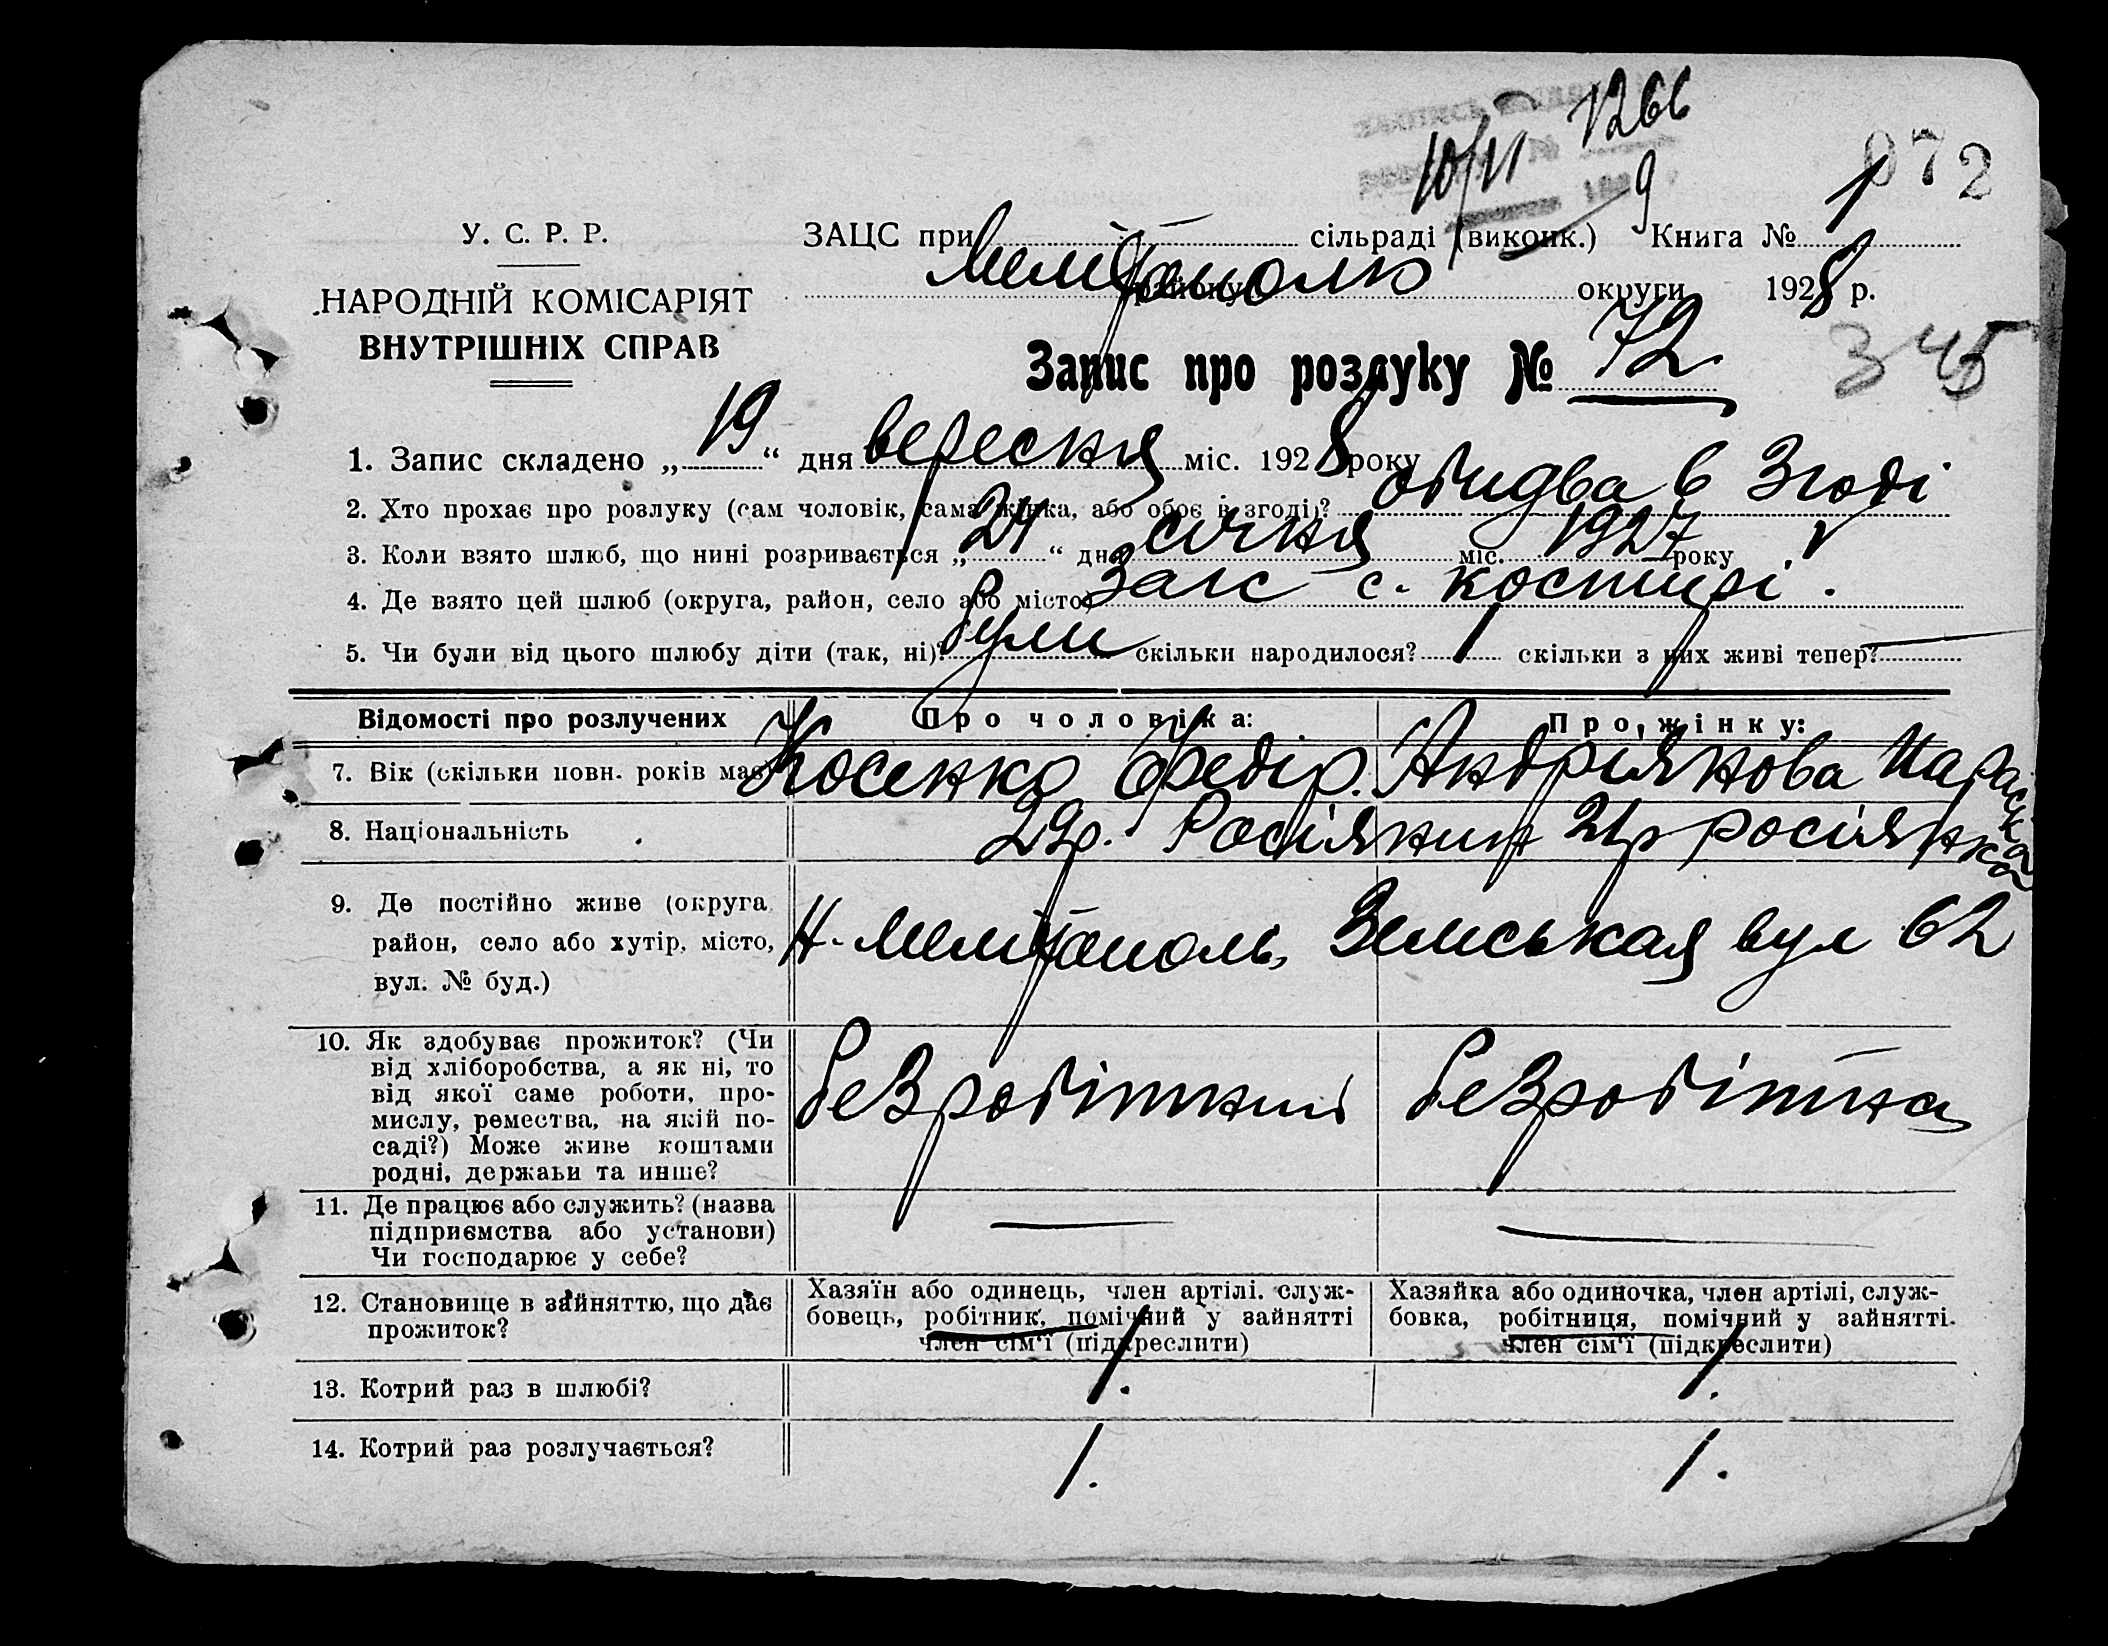 1266
10/VI 9
072
У. С. Р. Р.
НАРОДНІЙ КОМІСАРІЯТ
ВНУТРІШНІХ СПРАВ
ЗАЦС при сільраді (виконк.) Книга № 1
Мелітополь району округи 1928 р.
Запис про розлуку № 72.
345
1. Запис складено „19“ дня вересня міс. 1928 року
2. Хто прохає про розлуку (сам чоловік, сама жінка, або обоє в згоді)? обидва в Згоді
3. Коли взято шлюб, що нині розривається „24“ дня січня міс. 1927 року
4. Де взято цей шлюб (округа, район, село або місто) Загс с. костирі.
5. Чи були від цього шлюбу діти (так, ні)? були скільки народилося? 1 скільки з них живі тепер? —
Відомості про розлучених
Про чоловіка:
Про жінку:
7. Вік (скільки повн. років має)
Косенко Федір.
Андріянова Параска
8. Національність
29р. Росіянин
21р росіянка
9. Де постійно живе (округа, район, село або хутір, місто, вул. № буд.)
Н-Мелітополь, Земськая вул 62
10. Як здобуває прожиток? (Чи
від хліборобства, а як ні, то
від якої саме роботи, про-
мислу, ремества, на якій по-
саді?) Може живе коштами
родні, держави та инше?
безробітний
безробітна
11. Де працює або служить? (назва
підприємства або установи)
Чи господарює у себе?
—
—
12. Становище в зайняттю, що дає
прожиток?
Хазяїн або одинець, член артілі. служ-
бовець, робітник, помічний у зайнятті
член сім'ї (підкреслити)
Хазяйка або одиночка, член артілі, служ-
бовка, робітниця, помічний у зайнятті.
член сім'ї (підкреслити)
13. Котрий раз в шлюбі?
1.
1.
14. Котрий раз розлучається?
1.
1.